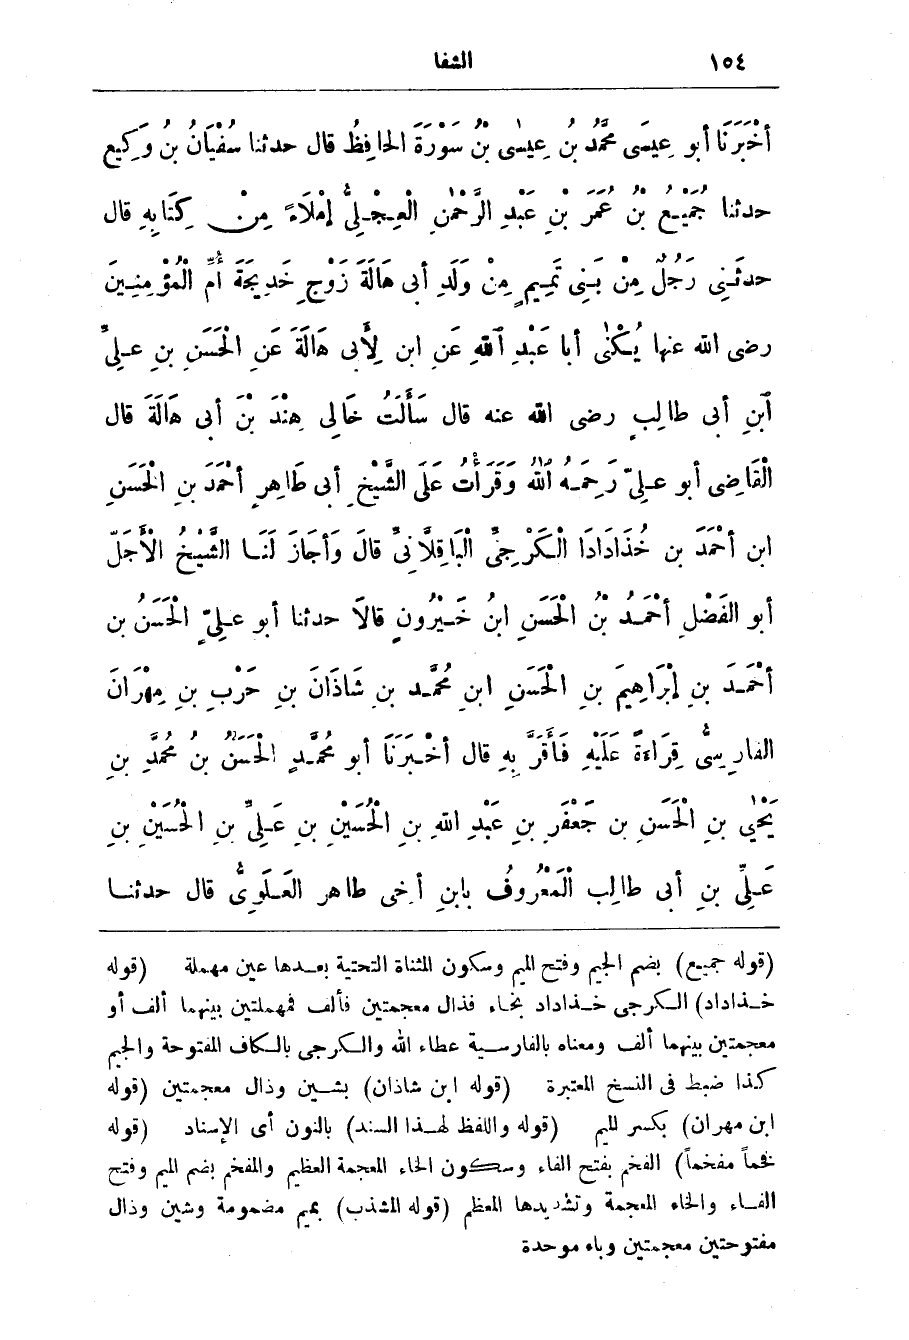 ١٥٤ الشفا
أَخْبَرَنَا أبو عِيسَى مُحَمَّدُ بنُ عِيسٰى بْنُ سَوْرَةَ الحَافِظُ قال حدثنا سُفْيَانُ بنُ وَكِيعٍ
حدثنا جُمَيْعُ بْنُ عُمَرَ بْنِ عَبْدِ الرَّحْمٰنِ الْعِجْلِىُّ إمْلَاءً مِنْ كِتَابِهِ قال
حدثَنِى رَجُلٌ مِنْ بَنِى تَمِيمٍ مِنْ وَلَدِ أبى هَالَةَ زَوْجِ خَدِيجَةَ أُمِّ الْمُؤْمِنِينَ
رضى الله عنها يُكْنٰى أبا عَبْدِ اللهِ عَنِ ابن لِأَبى هَالَةَ عَنِ الْحَسَنِ بنِ عَلِىِّ
ابْنِ أبى طالِبٍ رضى الله عنه قال سَأَلْتُ خَالِى هِنْدَ بْنَ أبى هَالَةَ قال
الْقَاضِى أبو عَلِىّ رَحِمَهُ اللهُ وَقَرَأْتُ عَلَى الشَّيْخِ أبى طَاهِرٍ أحْمَدَ بنِ الحَسَنِ
ابن أحْمَدَ بن خُذَادَادَا الْكَرْجِىِّ الْبَاقِلَّانِىِّ قالَ وَأجَازَ لَنَا الشَّيْخُ الْأَجَلّ
أبو الفَضْلِ أحْمَدُ بْنُ الْحَسَنِ ابنُ خَيْرُونٍ قالَا حدثنا أبو عَلِىٍّ الْحَسَنُ بن
أحْمَدَ بنِ إبْرَاهِيمَ بنِ الْحَسَنِ ابنِ مُحَمَّد بنِ شَاذَانَ بنِ حَرْبِ بنِ مِهْرَانَ
الفارِسِىُّ قِرَاءَةً عَلَيْهِ فَأَقَرَّ بِهِ قال أخْبَرَنَا أبو مُحَمَّدٍ الْحَسَنُ بنُ مُحَمَّدِ بنِ
يَحْيٰى بنِ الْحَسَنِ بن جَعْفَرِ بنِ عَبْدِ اللهِ بنِ الْحُسَيْنِ بنِ عَلِىِّ بنِ الْحُسَيْنِ بنِ
عَلِىِّ بنِ أبى طالِب الْمَعْرُوفُ بابنِ أخِى طاهر الْعَلَوِىُّ قال حدثنا
(قوله جميع) بضم الجيم وفتح الميم وسكون المثناة التحتية بعدها عين مهملة (قوله
خذاداد) الكرجى خذاداد بخاء فذال معجمتين فألف فمهملتين بينهما ألف أو
معجمتين بينهما ألف ومعناه بالفارسية عطاء الله والكرجى بالكاف المفتوحة والجيم
كذا ضبط فى النسخ المعتبرة (قوله ابن شاذان) بشين وذال معجمتين (قوله
ابن مهران) بكسر الميم (قوله واللفظ لهذا السند) بالنون أى الإسناد (قوله
فخماً مفخماً) الفخم بفتح الفاء وسكون الخاء المعجمة العظيم والمفخم بضم الميم وفتح
الفاء والخاء المعجمة وتشديدها المعظم (قوله المشذب) بميم مضمومة وشين وذال
مفتوحتين معجمتين وباء موحدة